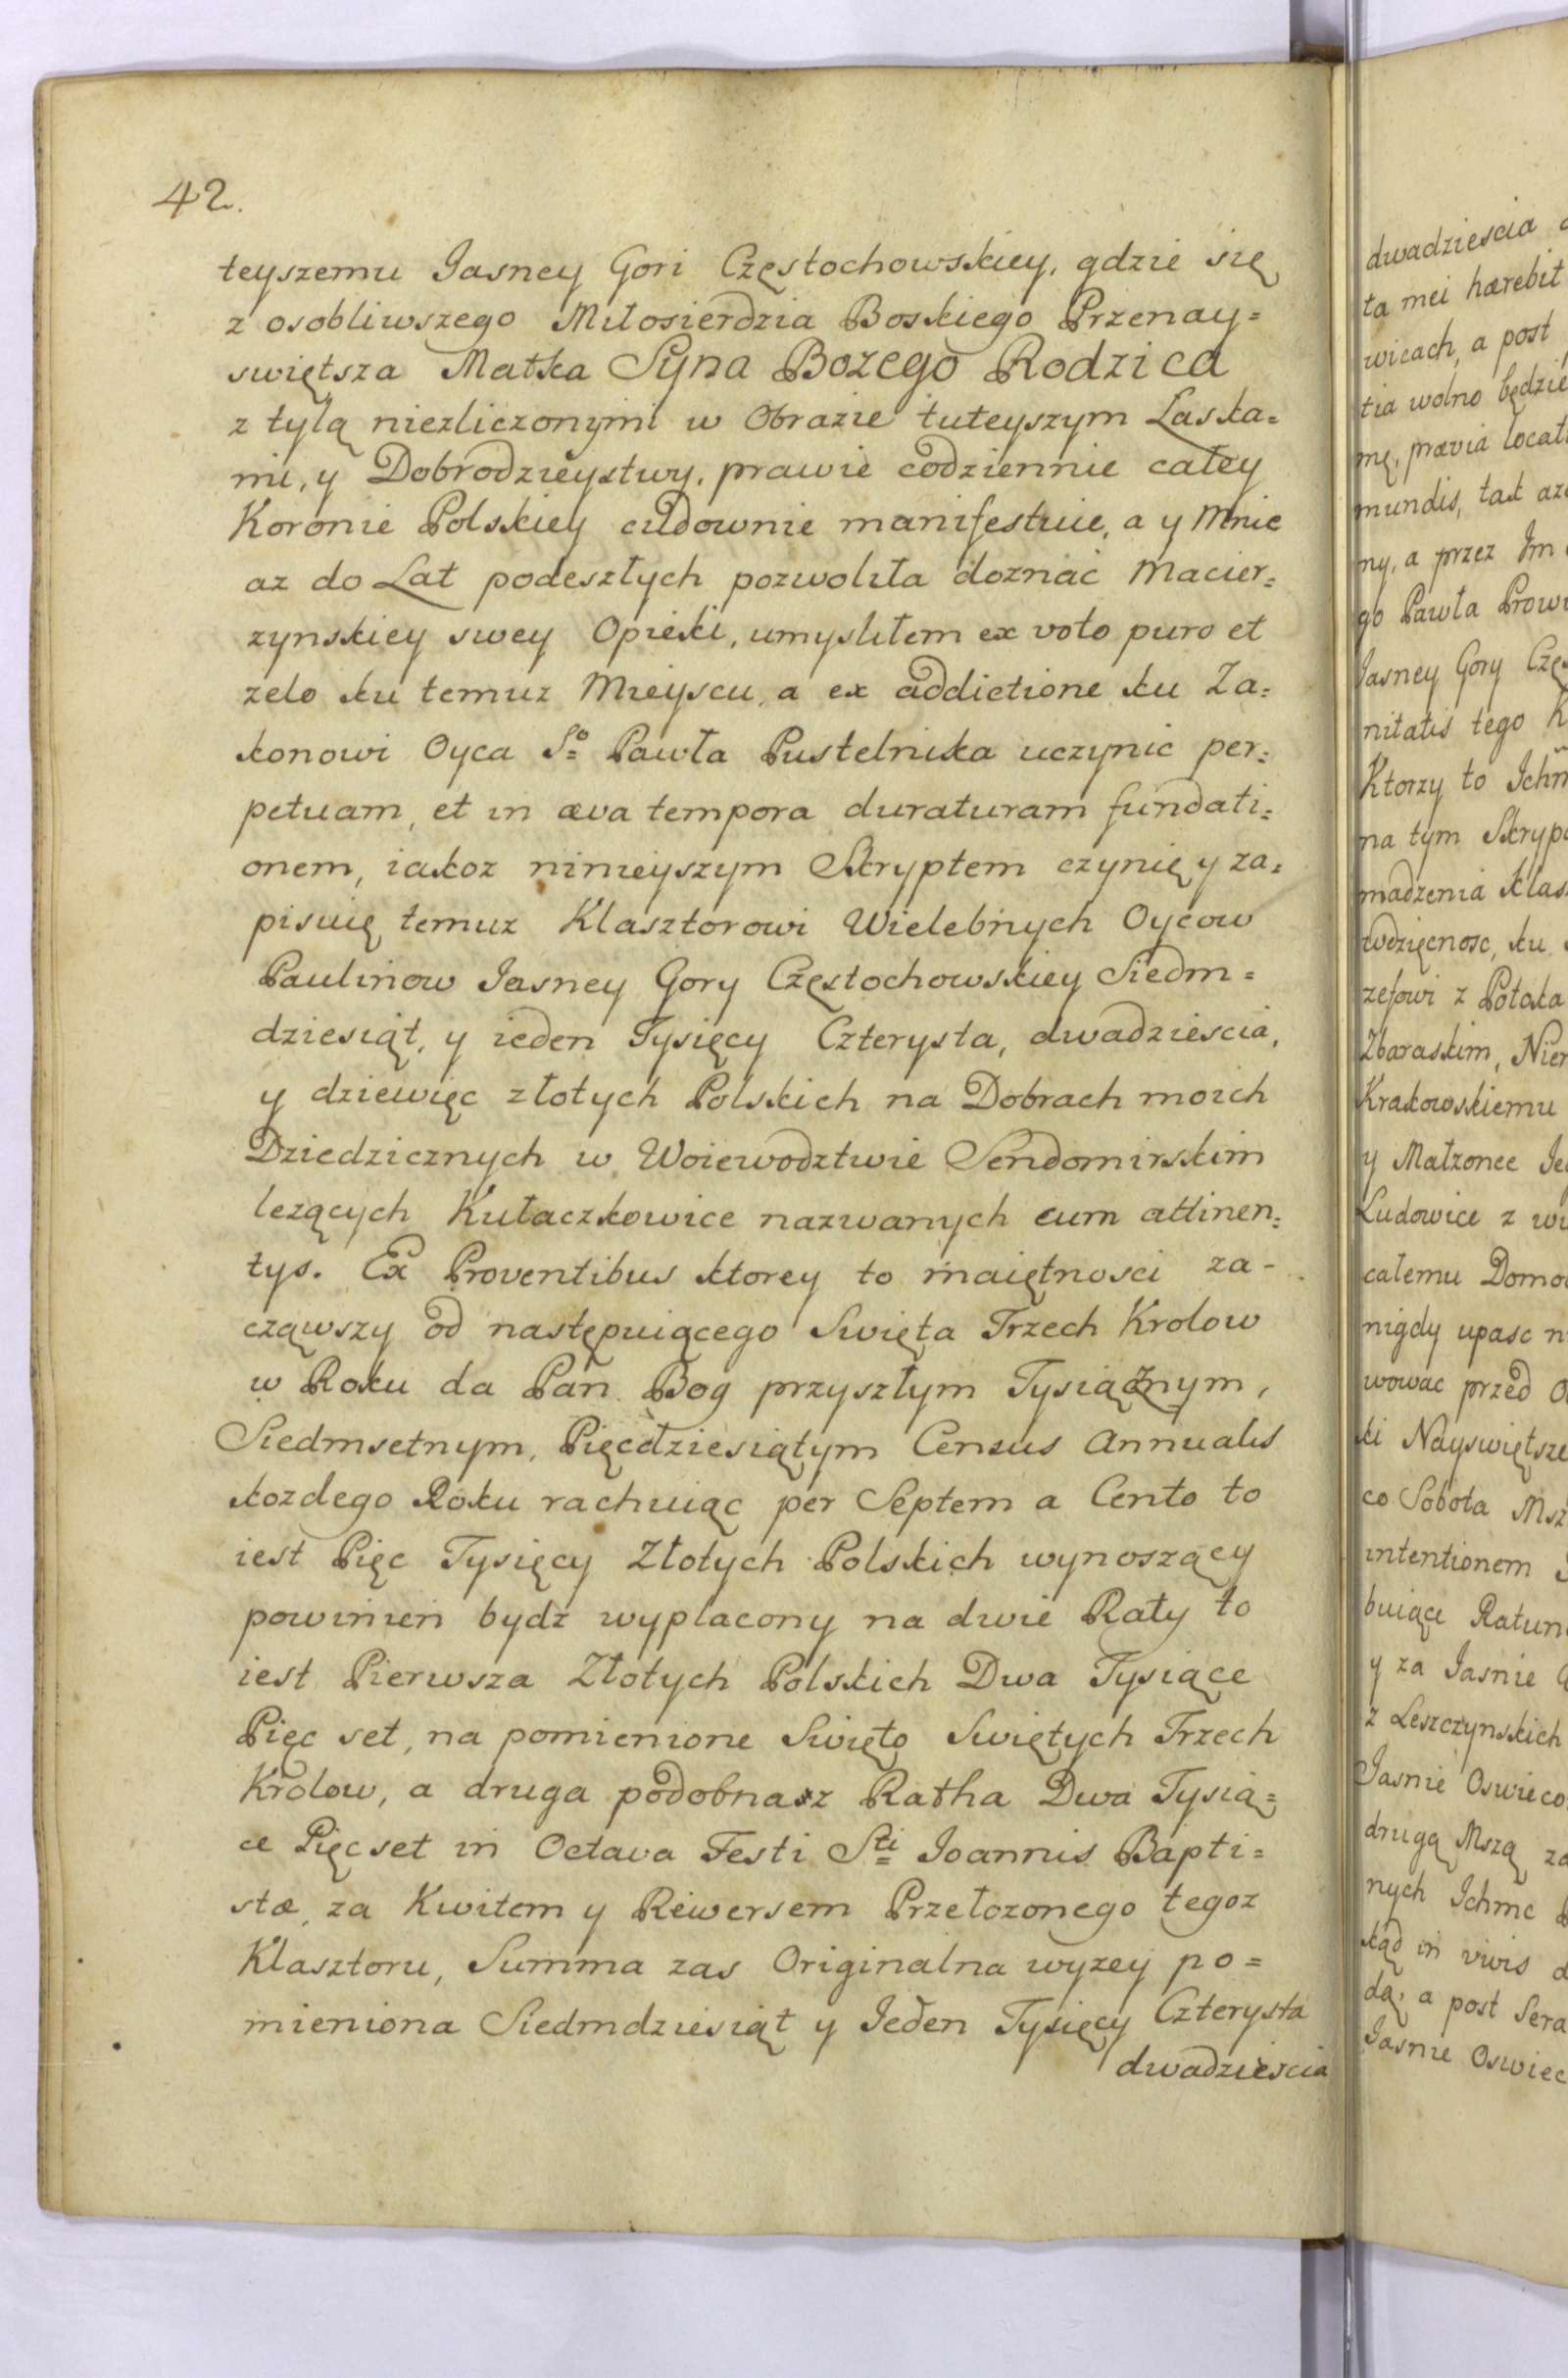 42.
teyszemu Jasney Gori Częstochowskiey, gdzie się
z osobliwszego Miłosierdzia Boskiego Przenay=
swiętsza Matka Syna Bozego Rodzica
z tylą niezliczonymi w Obrazie tuteyszym Laska=
mi, y Dobrodzieystwy, prawie codziennie całey
Koronie Polskiey cudownie manifestuie, a y Mnie
az do Lat podeszłych pozwoliła doznać Macier=
zynskiey swey Opieki, umysliłem ex voto puro et
zelo ku temuz Mieyscu, a ex addictione ku Za=
konowi Oyca So Pawła Pustelnika uczynic per=
petuam, et in æva tempora duraturam fundati=
onem, iakoz ninieyszym Skryptem czynię y za=
pisuię temuz Klasztorowi Wielebnych Oycow
Paulinow Jasney Gory Częstochowskiey Siedm=
dziesiąt, y ieden Tysięcy Czterysta, dwadziescia,
y dziewięc złotych Polskich na Dobrach moich
Dziedzicznych w Woiewodztwie Sendomirskim
lezących Kułaczkowice nazwanych cum attinen=
tys. Ex Proventibus ktorey to maiętnosci za-
cząwszy od następuiącego Swięta Trzech Krolow
w Roku da Pan Bog przyszłym Tysiącznym,
Siedmsetnym, Pięcdziesiątym Census Annualis
kozdego Roku rachuiąc per Septem a Cento to
iest Pięc Tysięcy Złotych Polskich wynoszący
powinien bydz wyplacony na dwie Raty to
iest Pierwsza Złotych Polskich Dwa Tysiące
Pięc set, na pomienione Swięto Swiętych Trzech
Krolow, a druga podobnasz Ratha Dwa Tysią=
ce Pięcset in Octava Festi Sti Joannis Bapti=
stæ, za Kwitem y Rewersem Przełozonego tegoz
Klasztoru, Summa zas Originalna wyzey po=
mieniona Siedmdziesiąt y Jeden Tysięcy Czterysta
dwadziescia
dwadziescia
ta mei hærebit
wicach, a post
tia wolno będzie
mę, prævia locat
mundis, tak
ny, a przez Jm
go Pawła
Jasney Gory
nitatis tego
Ktorzy to
na tym
madzenia
wdzięcnosc, ku
zefowi z Potoka
Zbaraskim,
Krakowskiemu
y Małzonce
Ludowice z
całemu
nigdy upasc
wowac przed
ki
co Sobota
intentionem
buiące
y za Jasnie
z Leszczynskich
Jasnie
drugą Mszą
nych Ichmc
kąd in vivis
dą, a post
Jasnie